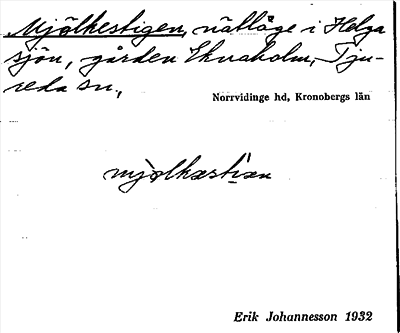 Mjölkestigen, nätläge i Helga
sjön, gården Eknaholm, Tju-
reda sn,
Norrvidinge hd, Kronobergs län
mjölkæstiæn
Erik Johannesson 1932